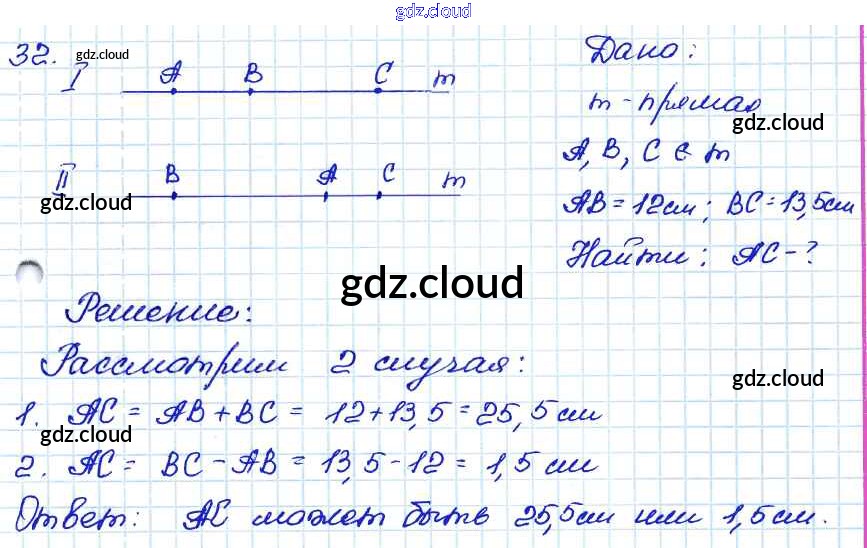 gdz.cloud
32. gdz.cloud
I A B C m
Дано:
m - прямая
gdz.cloud
A, B, C ∈ m
II B A C m
gdz.cloud
AB = 12 см; BC = 13,5 см
Найти: AC - ?
gdz.cloud
Решение:
Рассмотрим 2 случая:
gdz.cloud
1. AC = AB + BC = 12 + 13,5 = 25,5 см
gdz.cloud
2. AC = BC - AB = 13,5 - 12 = 1,5 см
Ответ: AC может быть 25,5 см или 1,5 см.